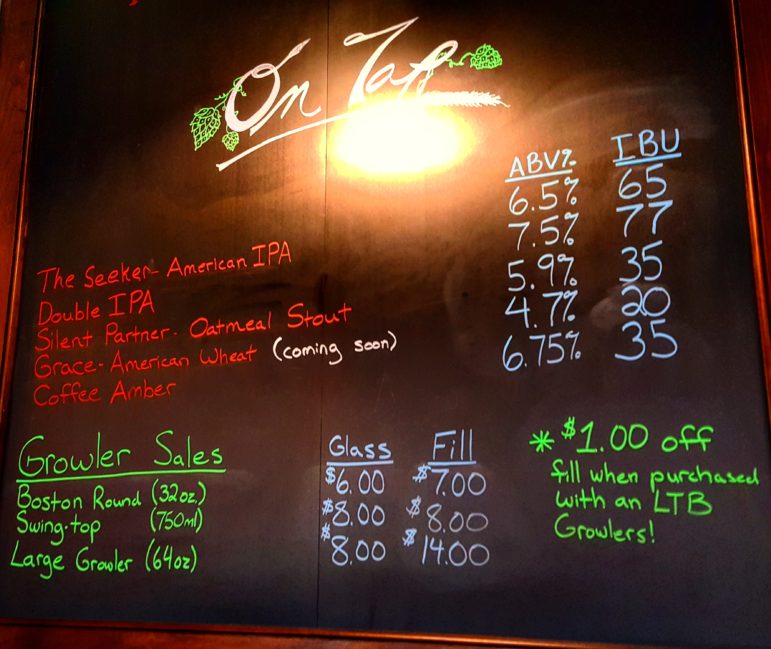 On Tap
ABV% IBU
The Seeker- American IPA 6.5% 65
Double IPA 7.5% 77
Silent Partner- Oatmeal Stout 5.9% 35
Grace- American Wheat (coming soon) 4.7% 20
Coffee Amber 6.75% 35
Growler Sales Glass Fill
Boston Round (32oz.) $6.00 $7.00
Swing-top (750ml) $8.00 $8.00
Large Growler (64oz) $8.00 $14.00
* $1.00 off
fill when purchased
with an LTB
Growlers!